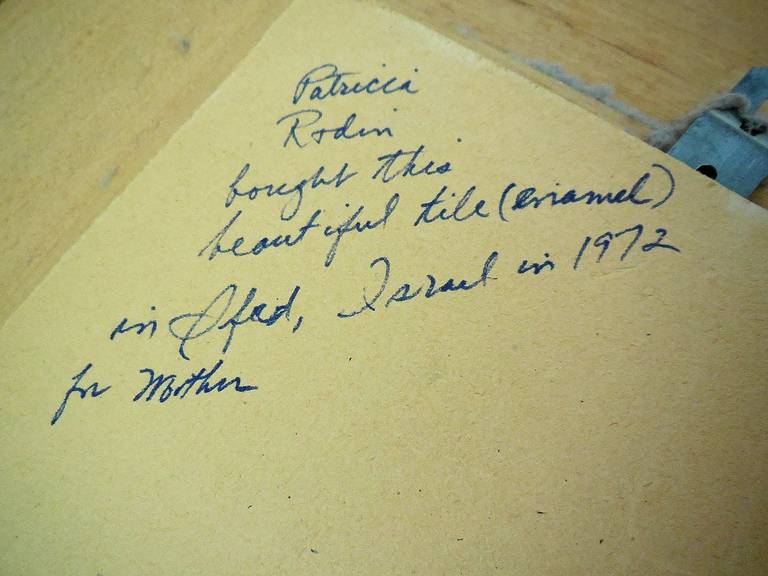 Patricia
Rodin
bought this
beautiful tile (enamel)
in Sfad, Israel in 1972
for Mother